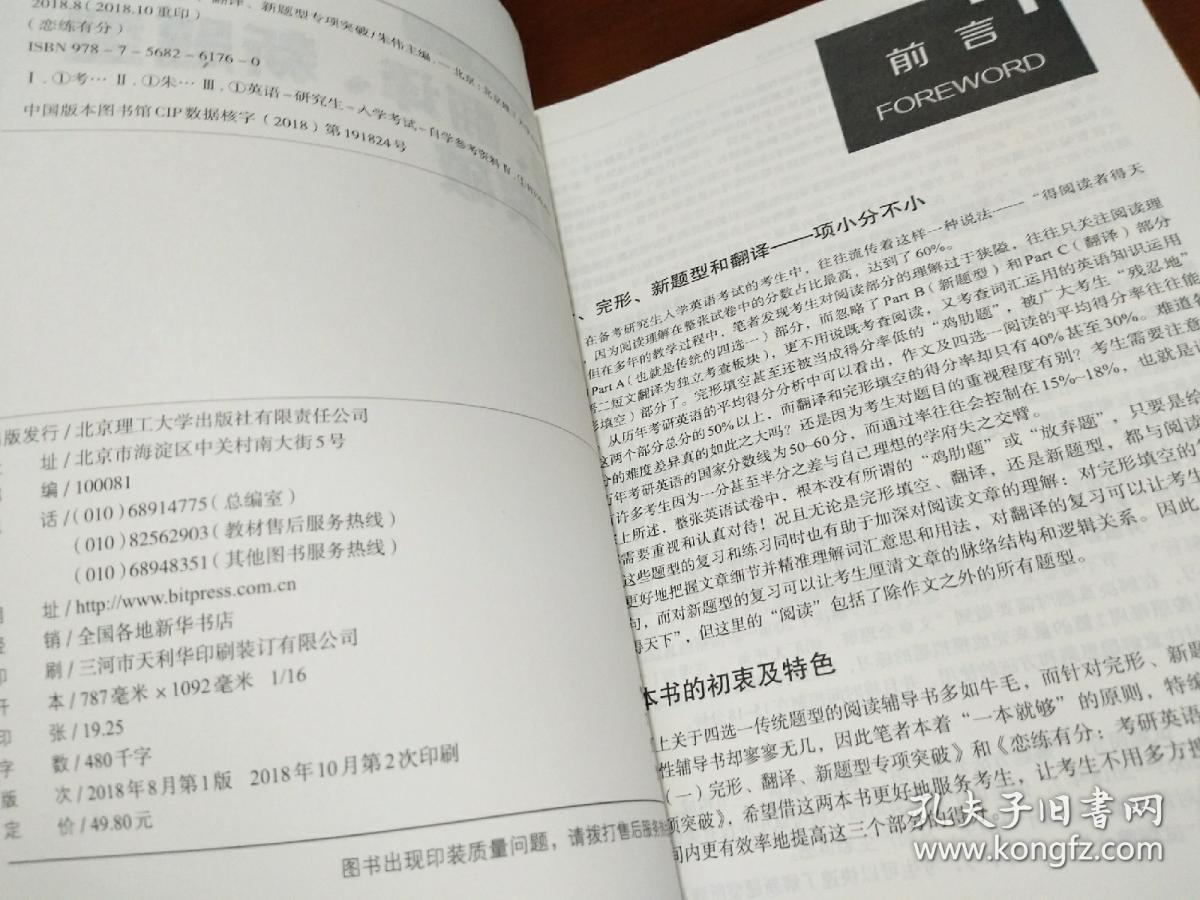 翻译、新题型专项突破/朱伟主编.—北京:北京理工大学
2018.8(2018.10重印)
(恋练有分)
ISBN 978-7-5682-6176-0
Ⅰ.①考… Ⅱ.①朱… Ⅲ.①英语-研究生-入学考试-自学参考资料 Ⅳ.
中国版本图书馆CIP数据核字(2018)第191824号
版发行/北京理工大学出版社有限责任公司
址/北京市海淀区中关村南大街5号
编/100081
话/(010)68914775(总编室)
(010)82562903(教材售后服务热线)
(010)68948351(其他图书服务热线)
址/http://www.bitpress.com.cn
销/全国各地新华书店
印 刷/三河市天利华印刷装订有限公司
开 本/787毫米×1092毫米 1/16
印 张/19.25
字 数/480千字
版 次/2018年8月第1版 2018年10月第2次印刷
定 价/49.80元
图书出现印装质量问题,请拨打售后服务热
前言
FOREWORD
、完形、新题型和翻译——项小分不小
在备考研究生入学英语考试的考生中,往往流传着这样一种说法——“得阅读者得天
因为阅读理解在整张试卷中的分数占比最高,达到了60%。
但在多年的教学过程中,笔者发现考生对阅读部分的理解过于狭隘,往往只关注阅读理
Part A(也就是传统的四选一)部分,而忽略了Part B(新题型)和Part C(翻译)部分
二短文翻译为独立考查板块),更不用说既考查阅读,又考查词汇运用的英语知识运用
形填空)部分了。完形填空甚至还被当成得分率低的“鸡肋题”,被广大考生“残忍地”
从历年考研英语的平均得分分析中可以看出,作文及四选一阅读的平均得分率往往能
这两个部分总分的50%以上,而翻译和完形填空的得分率却只有40%甚至30%。难道各
分的难度差异真的如此之大吗?还是因为考生对题目的重视程度有别?考生需要注意
年考研英语的国家分数线为50~60分,而通过率往往会控制在15%~18%,也就是说
有许多考生因为一分甚至半分之差与自己理想的学府失之交臂。
上所述,整张英语试卷中,根本没有所谓的“鸡肋题”或“放弃题”,只要是给
需要重视和认真对待!况且无论是完形填空、翻译,还是新题型,都与阅读
这些题型的复习和练习同时也有助于加深对阅读文章的理解:对完形填空的复
更好地把握文章细节并精准理解词汇意思和用法,对翻译的复习可以让考生
句,而对新题型的复习可以让考生厘清文章的脉络结构和逻辑关系。因此
得天下”,但这里的“阅读”包括了除作文之外的所有题型。
本书的初衷及特色
上关于四选一传统题型的阅读辅导书多如牛毛,而针对完形、新题
性辅导书却寥寥无几,因此笔者本着“一本就够”的原则,特编
(一)完形、翻译、新题型专项突破》和《恋练有分:考研英语
项突破》,希望借这两本书更好地服务考生,让考生不用多方搜
间内更有效率地提高这三个部分的得分。
孔夫子旧书网
www.kongfz.com